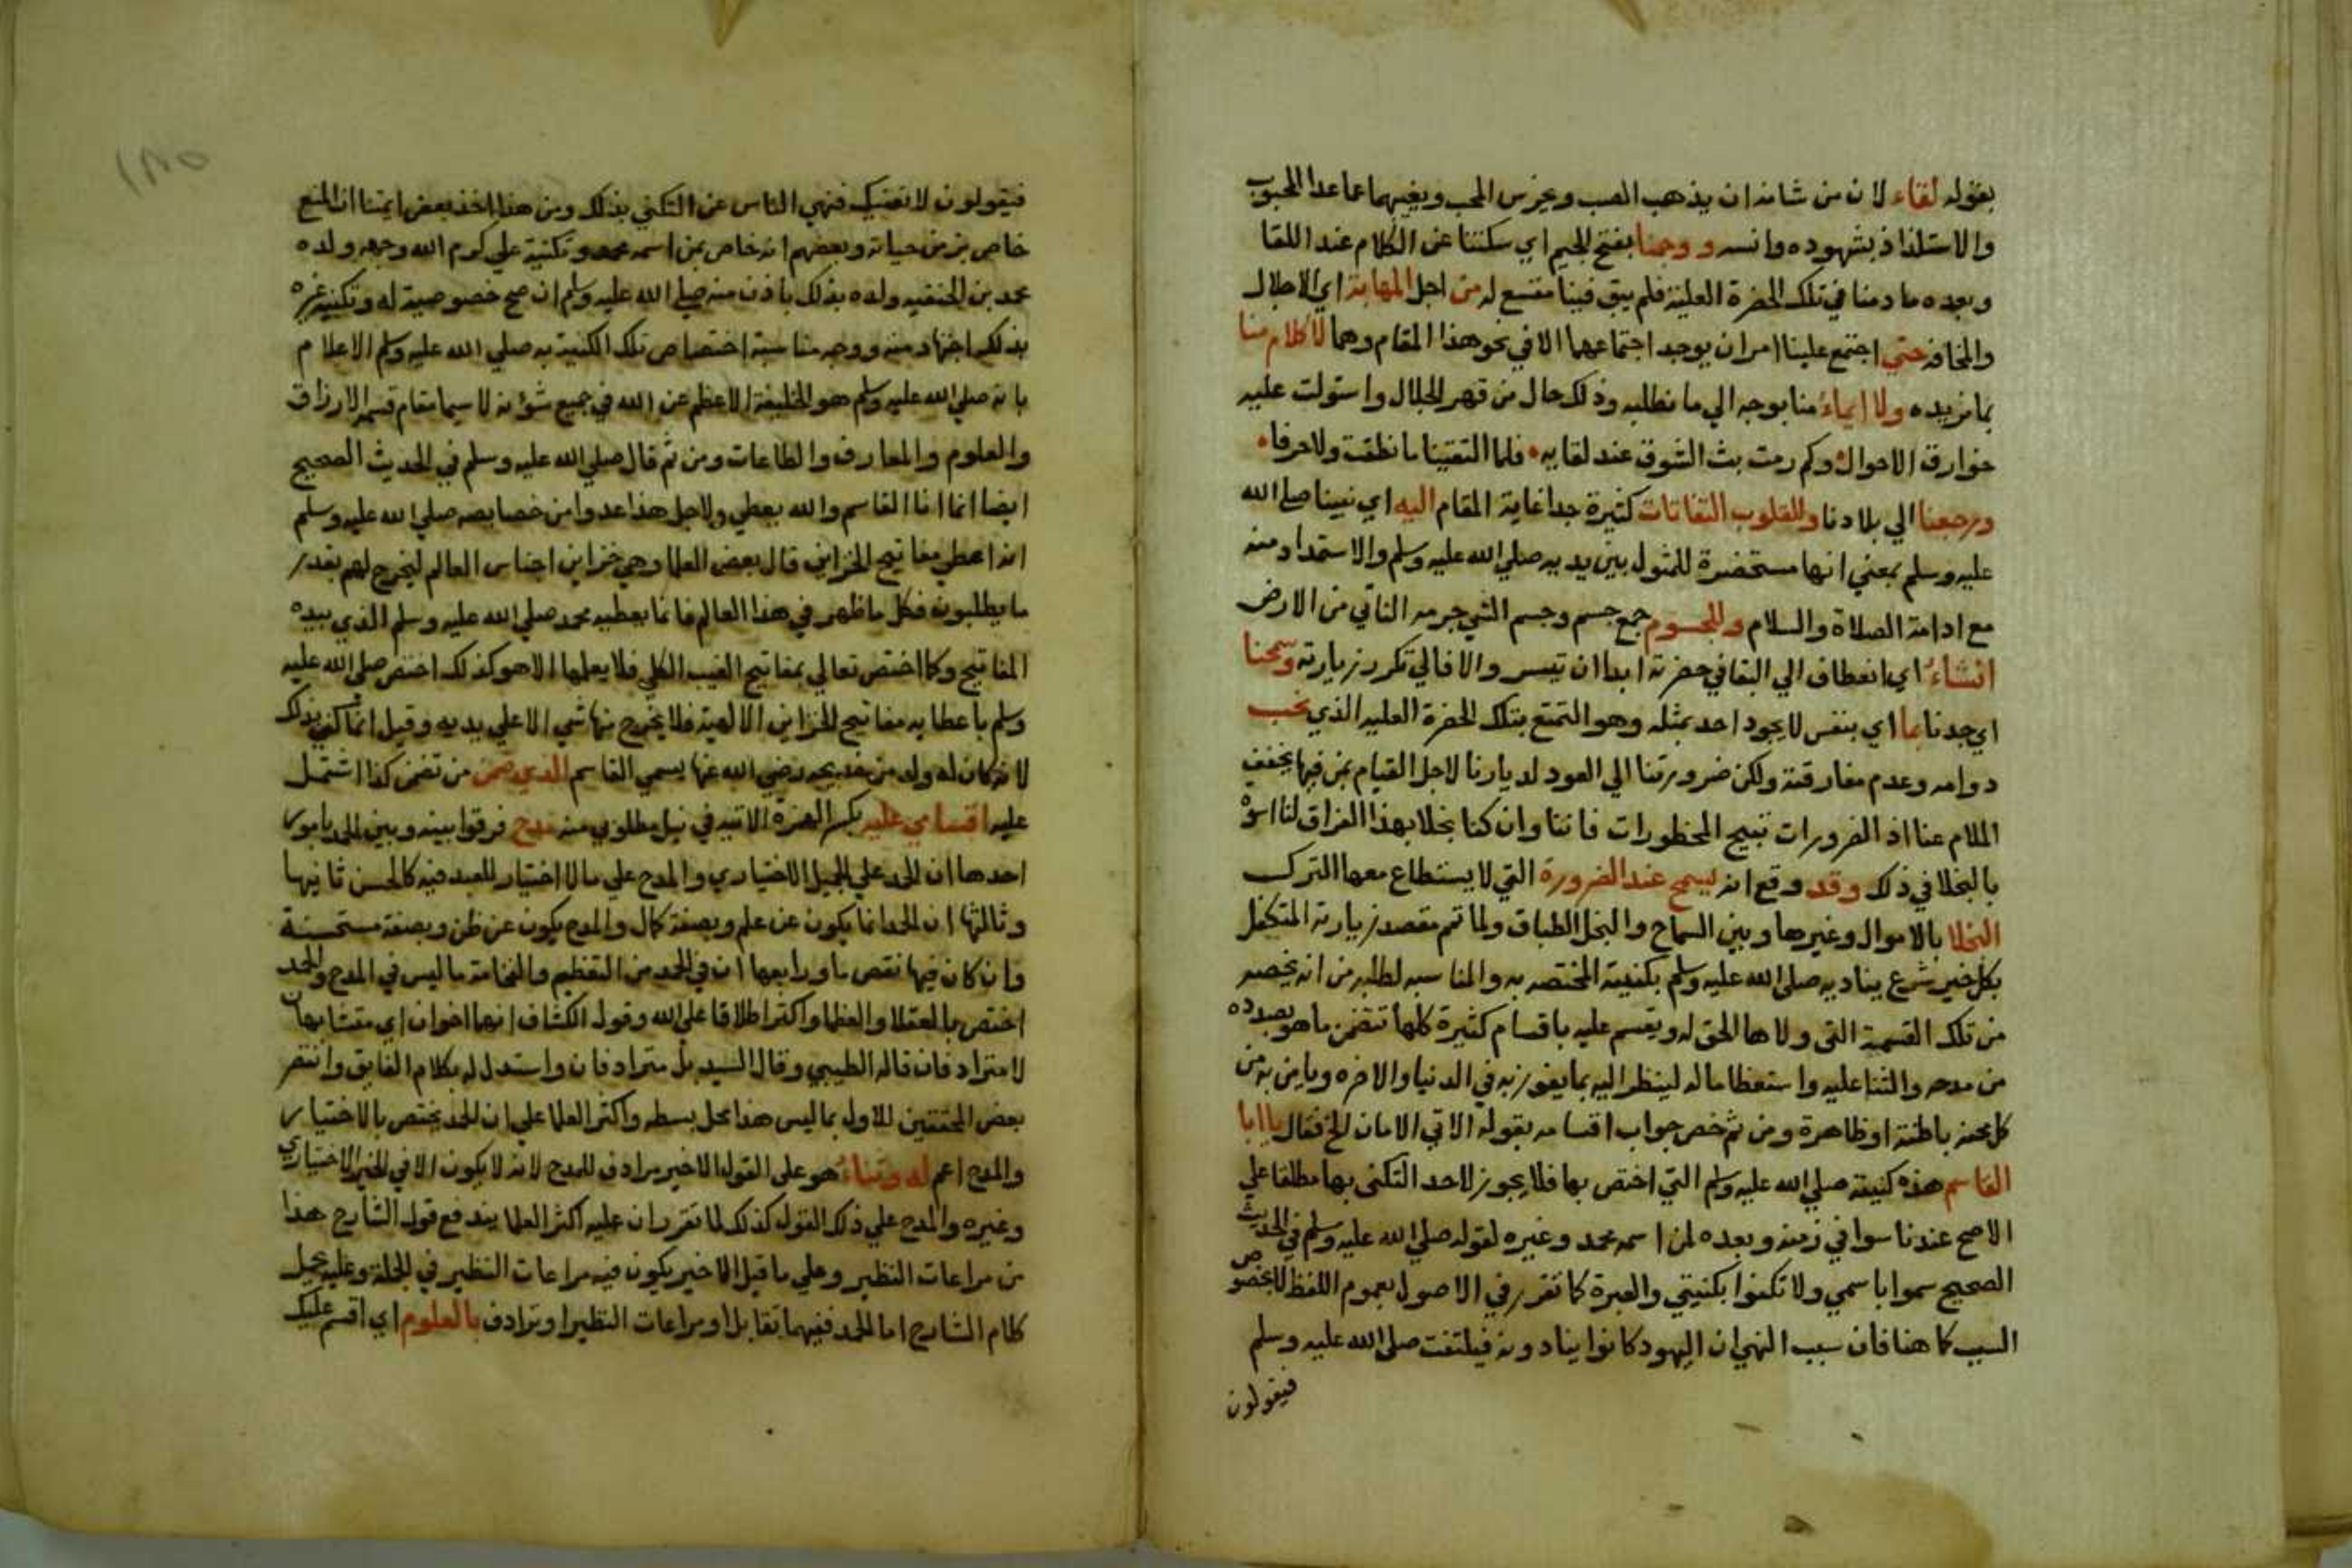 بقوله لقاء لان من شانه ان يذهب الصب ويخرس المحب ويغيبهما عما عدا المحبوب
والاستلذاذ بشهوده وانسه و وجمنا بفتح الجيم اي سكتنا عن الكلام عند اللقا
وبعده ما دمنا في تلك الحضرة العلية فلم يبق فينا متسع له من اجل المهابة اي الاجلال
والمخافة حتي اجتمع علينا امران يوجد اجتماعهما الا في نحو هذا المقام وهما لا كلام منا
بما نريده ولا ايماء منا بوجه الي ما نطلبه وذلك حال من قهر الجلال واستولت عليه
خوارق الاحوال وكم رمت بث الشوق عند لقايه فلما التقينا ما نطقت ولا حرفا
ورجعنا الي بلادنا وللقلوب التفاتات كثيرة جدا غاية المقام اليه اي نبينا صلى الله
عليه وسلم بمعني انها مستحضرة للمثول بين يديه صلي الله عليه وسلم والاستمداد منه
مع ادامة الصلاة والسلام وللجسوم جمع جسم وجسم الشي جرمه الناتي من الارض
انثناء اي انعطاف الي البقا في حضرته ابدا ان تيسر والا فالي تكرر زيارته وسمحنا
اي جدنا بما اي بنفس لا يجود احد بمثله وهو التمتع بتلك الحضرة العليه الذي نحب
دوامه وعدم مفارقته ولكن ضرورتنا الي العود لديارنا لاجل القيام بمن فيها يخفف
الملام عنا اذ الضرورات تبيح المحظورات فاننا وان كنا بخلا بهذا الفراق لنا اسوة
بالبخلا في ذلك وقد وقع انه يسمح عند الضرورة التي لا يستطاع معها الترك
البخلا بالاموال وغيرها وبين السماح والبخل الطباق ولما تم مقصد زيارته المتكفل
بكل خير شرع يناديه صلى الله عليه وسلم بكنيته المختصه به والمناسبه لطلبه من انه يخصه
من تلك القسمة التي ولاها الحق له ويقسم عليه باقسام كثيرة كلها تتضمن ما هو بصدده
من مدحه والثنا عليه واستعظاما له لينظر اليه بما يفوز به في الدنيا والاخره ويامن به من
كل محنة باطنة او ظاهرة ومن ثم خص جواب اقسامه بقوله الاتي الامان الخ فقال يا ابا
القاسم هذه كنيته صلي الله عليه وسلم التي اختص بها فلا يجوز لاحد التكني بها مطلقا علي
الاصح عندنا سوا في زمنه وبعده لمن اسمه محمد وغيره لقوله صلي الله عليه وسلم في الحديث
الصحيح سموا باسمي ولا تكنوا بكنيتي والعبرة كما تقرر في الاصول بعموم اللفظ لا بخصوص
السبب كما هنا فان سبب النهي ان اليهود كانوا ينادونه فيلتفت صلى الله عليه وسلم
فيقولون
١٨٥
فيقولون لا نعنيك فنهي الناس عن التكني بذلك ومن هذا اخذ بعض ايمتنا ان المنع
خاص بزمن حياته وبعضهم انه خاص بمن اسمه محمد وتكنية علي كرم الله وجهه ولده
محمد بن الحنفيه ولده بذلك باذن منه صلي الله عليه وسلم ان صح خصوصية له وتكنية غيره
بذلك اجتهاد منه ووجه مناسبة اختصاص تلك الكنية به صلي الله عليه وسلم الاعلام
بانه صلي الله عليه وسلم هو الخليفة الاعظم عن الله في جميع شؤنه لا سيما مقام قسم الارزاق
والعلوم والمعارف والطاعات ومن ثم قال صلي الله عليه وسلم في الحديث الصحيح
ايضا انما انا القاسم والله يعطي ولاجل هذا عدوا من خصايصه صلي الله عليه وسلم
انه اعطي مفاتيح الخزاين قال بعض العلما وهي خزاين اجناس العالم ليخرج لهم بقدر
ما يطلبون فكل ما ظهر في هذا العالم فانما يعطيه محمد صلي الله عليه وسلم الذي بيده
المفاتيح وكما اختص تعالي بمفاتيح الغيب الكلي فلا يعلمها الا هو كذلك اختص صلى الله عليه
وسلم باعطايه مفاتيح الخزاين الالهية فلا يخرج منها شي الا علي يديه وقيل انما كني بذلك
لانه كان له ولد من خديجه رضي الله عنها يسمي القاسم الذي ضمن من تضمن كذا اشتمل
عليه اقسامي عليه بكسر الهمزة الاتيه في نيل مطلوبي منه مدح فرقوا بينه وبين الحمد بامور
احدها ان الحمد علي الجميل الاختياري والمدح علي ما لا اختيار للعبد فيه كالحسن ثانيها
وثالثها ان الحمد انما يكون عن علم وبصفة كمال والمدح يكون عن ظن وبصفة مستحسنة
وان كان فيها نقص ما ورابعها ان في الحمد من التعظيم والفخامة ما ليس في المدح والحمد
اختص بالعقلا والعظما واكثر اطلاقا علي الله وقول الكشاف انهما اخوان اي متشابهان
لا مترادفان قاله الطيبي وقال السيد بل مترادفان واستدل له بكلام الفايق وانتصر
بعض المحققين للاول بما ليس هذا محل بسطه واكثر العلما علي ان الحمد يختص بالاختيار
والمدح اعم له وثناء هو على القول الاخير مرادف للمدح لانه لا يكون الا في الخير الاختياري
وغيره والمدح علي ذلك القول كذلك لما تقرر ان عليه اكثر العلما يندفع قول الشارح هذا
من مراعات النظير وعلي ما قبل الاخير يكون فيه مراعات النظير في الجملة وعليه يحمل
كلام الشارح اما الحمد ففيهما تقابل او مراعات النظير او ترادف بالعلوم اي اقسم عليك